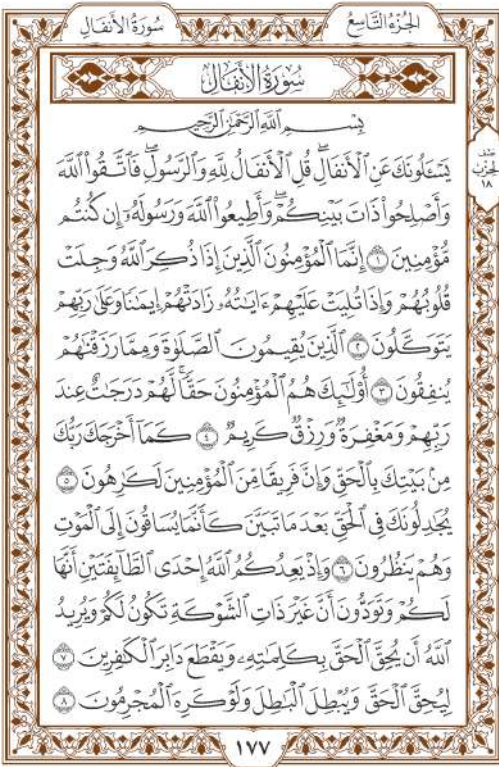 سُورَةُ الأَنفَالِ
الجُزْءُ التَّاسِعُ
سُورَةُ الأَنفَالِ
بِسْمِ ٱللَّهِ ٱلرَّحْمَٰنِ ٱلرَّحِيمِ
نصف الحزب ١٨
يَسْـَٔلُونَكَ عَنِ ٱلْأَنفَالِۖ قُلِ ٱلْأَنفَالُ لِلَّهِ وَٱلرَّسُولِۖ فَٱتَّقُوا۟ ٱللَّهَ
وَأَصْلِحُوا۟ ذَاتَ بَيْنِكُمْۖ وَأَطِيعُوا۟ ٱللَّهَ وَرَسُولَهُۥٓ إِن كُنتُم
مُّؤْمِنِينَ ١ إِنَّمَا ٱلْمُؤْمِنُونَ ٱلَّذِينَ إِذَا ذُكِرَ ٱللَّهُ وَجِلَتْ
قُلُوبُهُمْ وَإِذَا تُلِيَتْ عَلَيْهِمْ ءَايَٰتُهُۥ زَادَتْهُمْ إِيمَٰنًا وَعَلَىٰ رَبِّهِمْ
يَتَوَكَّلُونَ ٢ ٱلَّذِينَ يُقِيمُونَ ٱلصَّلَوٰةَ وَمِمَّا رَزَقْنَٰهُمْ
يُنفِقُونَ ٣ أُو۟لَٰٓئِكَ هُمُ ٱلْمُؤْمِنُونَ حَقًّاۚ لَّهُمْ دَرَجَٰتٌ عِندَ
رَبِّهِمْ وَمَغْفِرَةٌ وَرِزْقٌ كَرِيمٌ ٤ كَمَآ أَخْرَجَكَ رَبُّكَ
مِنۢ بَيْتِكَ بِٱلْحَقِّ وَإِنَّ فَرِيقًا مِّنَ ٱلْمُؤْمِنِينَ لَكَٰرِهُونَ ٥
يُجَٰدِلُونَكَ فِى ٱلْحَقِّ بَعْدَ مَا تَبَيَّنَ كَأَنَّمَا يُسَاقُونَ إِلَى ٱلْمَوْتِ
وَهُمْ يَنظُرُونَ ٦ وَإِذْ يَعِدُكُمُ ٱللَّهُ إِحْدَى ٱلطَّآئِفَتَيْنِ أَنَّهَا
لَكُمْ وَتَوَدُّونَ أَنَّ غَيْرَ ذَاتِ ٱلشَّوْكَةِ تَكُونُ لَكُمْ وَيُرِيدُ
ٱللَّهُ أَن يُحِقَّ ٱلْحَقَّ بِكَلِمَٰتِهِۦ وَيَقْطَعَ دَابِرَ ٱلْكَٰفِرِينَ ٧
لِيُحِقَّ ٱلْحَقَّ وَيُبْطِلَ ٱلْبَٰطِلَ وَلَوْ كَرِهَ ٱلْمُجْرِمُونَ ٨
١٧٧